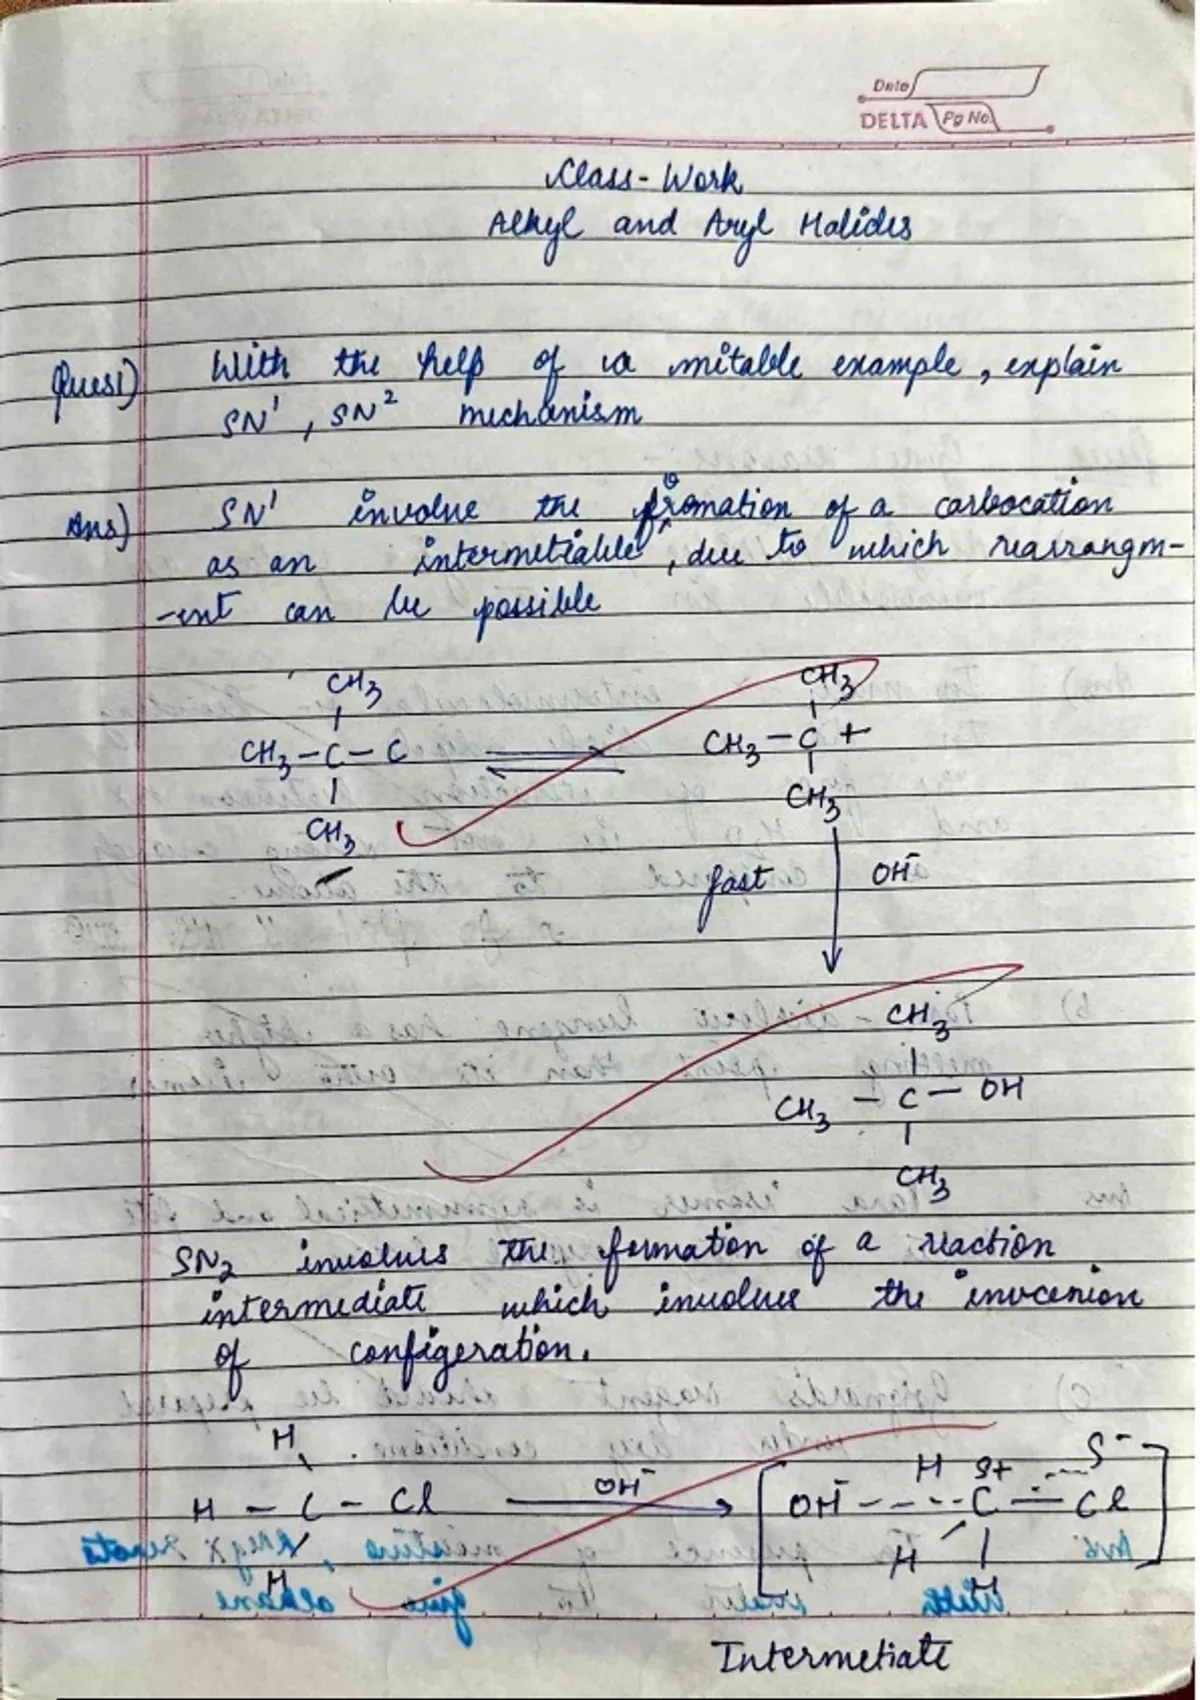 Date
DELTA Pg No.
Class-Work
Alkyl and Aryl Halides
Ques1) With the help of a suitable example, explain
SN¹, SN² mechanism
Ans) SN¹ involve the formation of a carbocation
as an intermetiable, due to which rearrangm-
-ent can be possible
CH₃
CH₃-C-C ⇌ CH₃-C+
CH₃
CH₃
CH₃
fast OH⁻
CH₃
CH₃-C-OH
CH₃
SN₂ involves the formation of a reaction
intermediate which involves the
of configeration.
H
H-C-Cl OH⁻ [OH⁻----C-Cl]
H δ+ δ-
H
H
H
Intermetiate